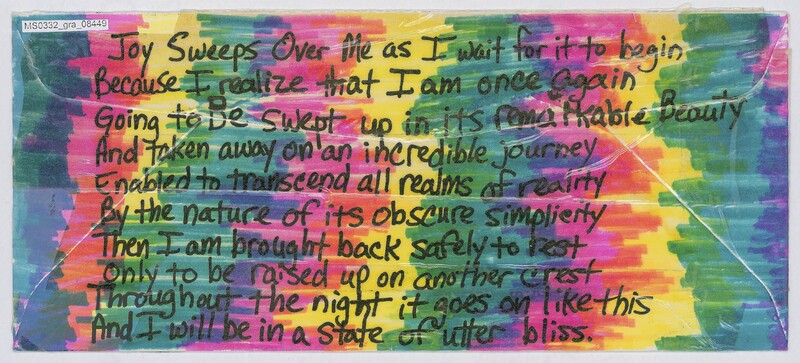 MS0332_gra_08449
Joy Sweeps Over Me as I wait for it to begin
Because I realize that I am once again
Going to Be swept up in its remarkable Beauty
And taken away on an incredible journey
Enabled to transcend all realms of reality
By the nature of its obscure simplicity
Then I am brought back safely to rest
Only to be raised up on another crest
Throughout the night it goes on like this
And I will be in a state of utter bliss.